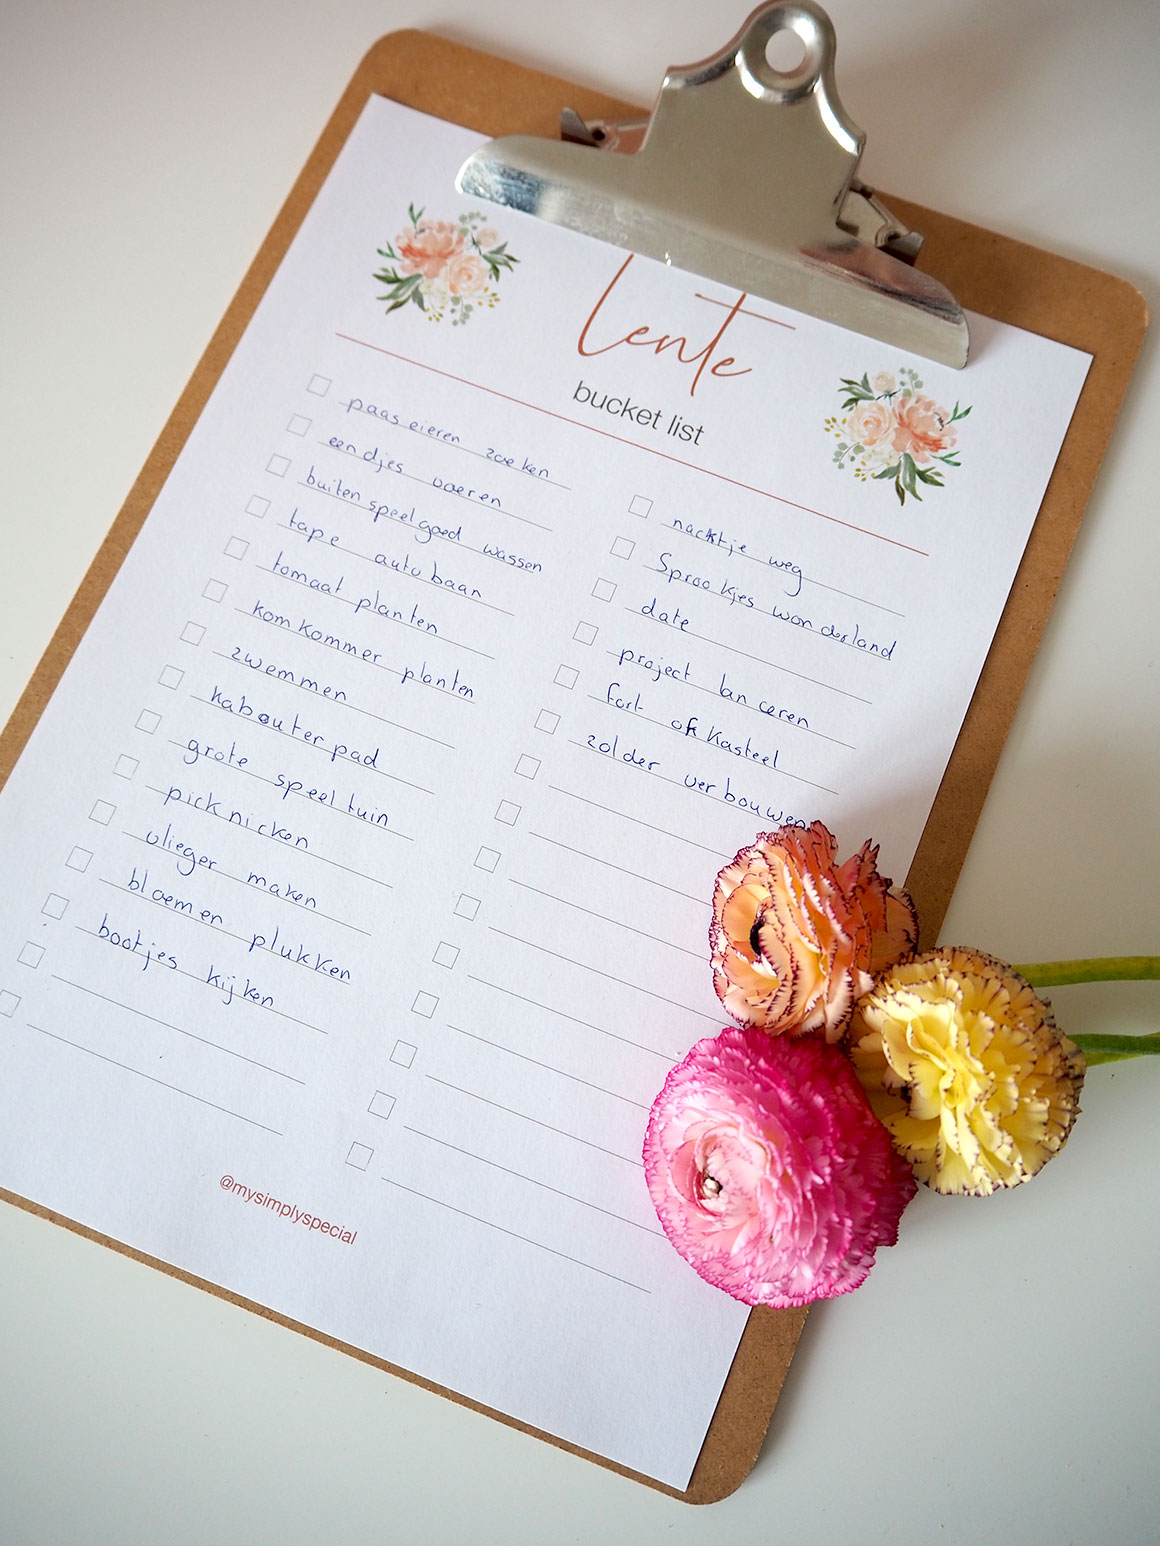 lente
bucket list
paas eieren zoeken
eendjes voeren
buiten speelgoed wassen
tape autobaan
tomaat planten
komkommer planten
zwemmen
kabouter pad
grote speeltuin
picknicken
vlieger maken
bloemen plukken
bootjes kijken
nachtje weg
Sprookjes wonderland
date
project lanceren
fort of kasteel
zolder verbouwen
@mysimplyspecial